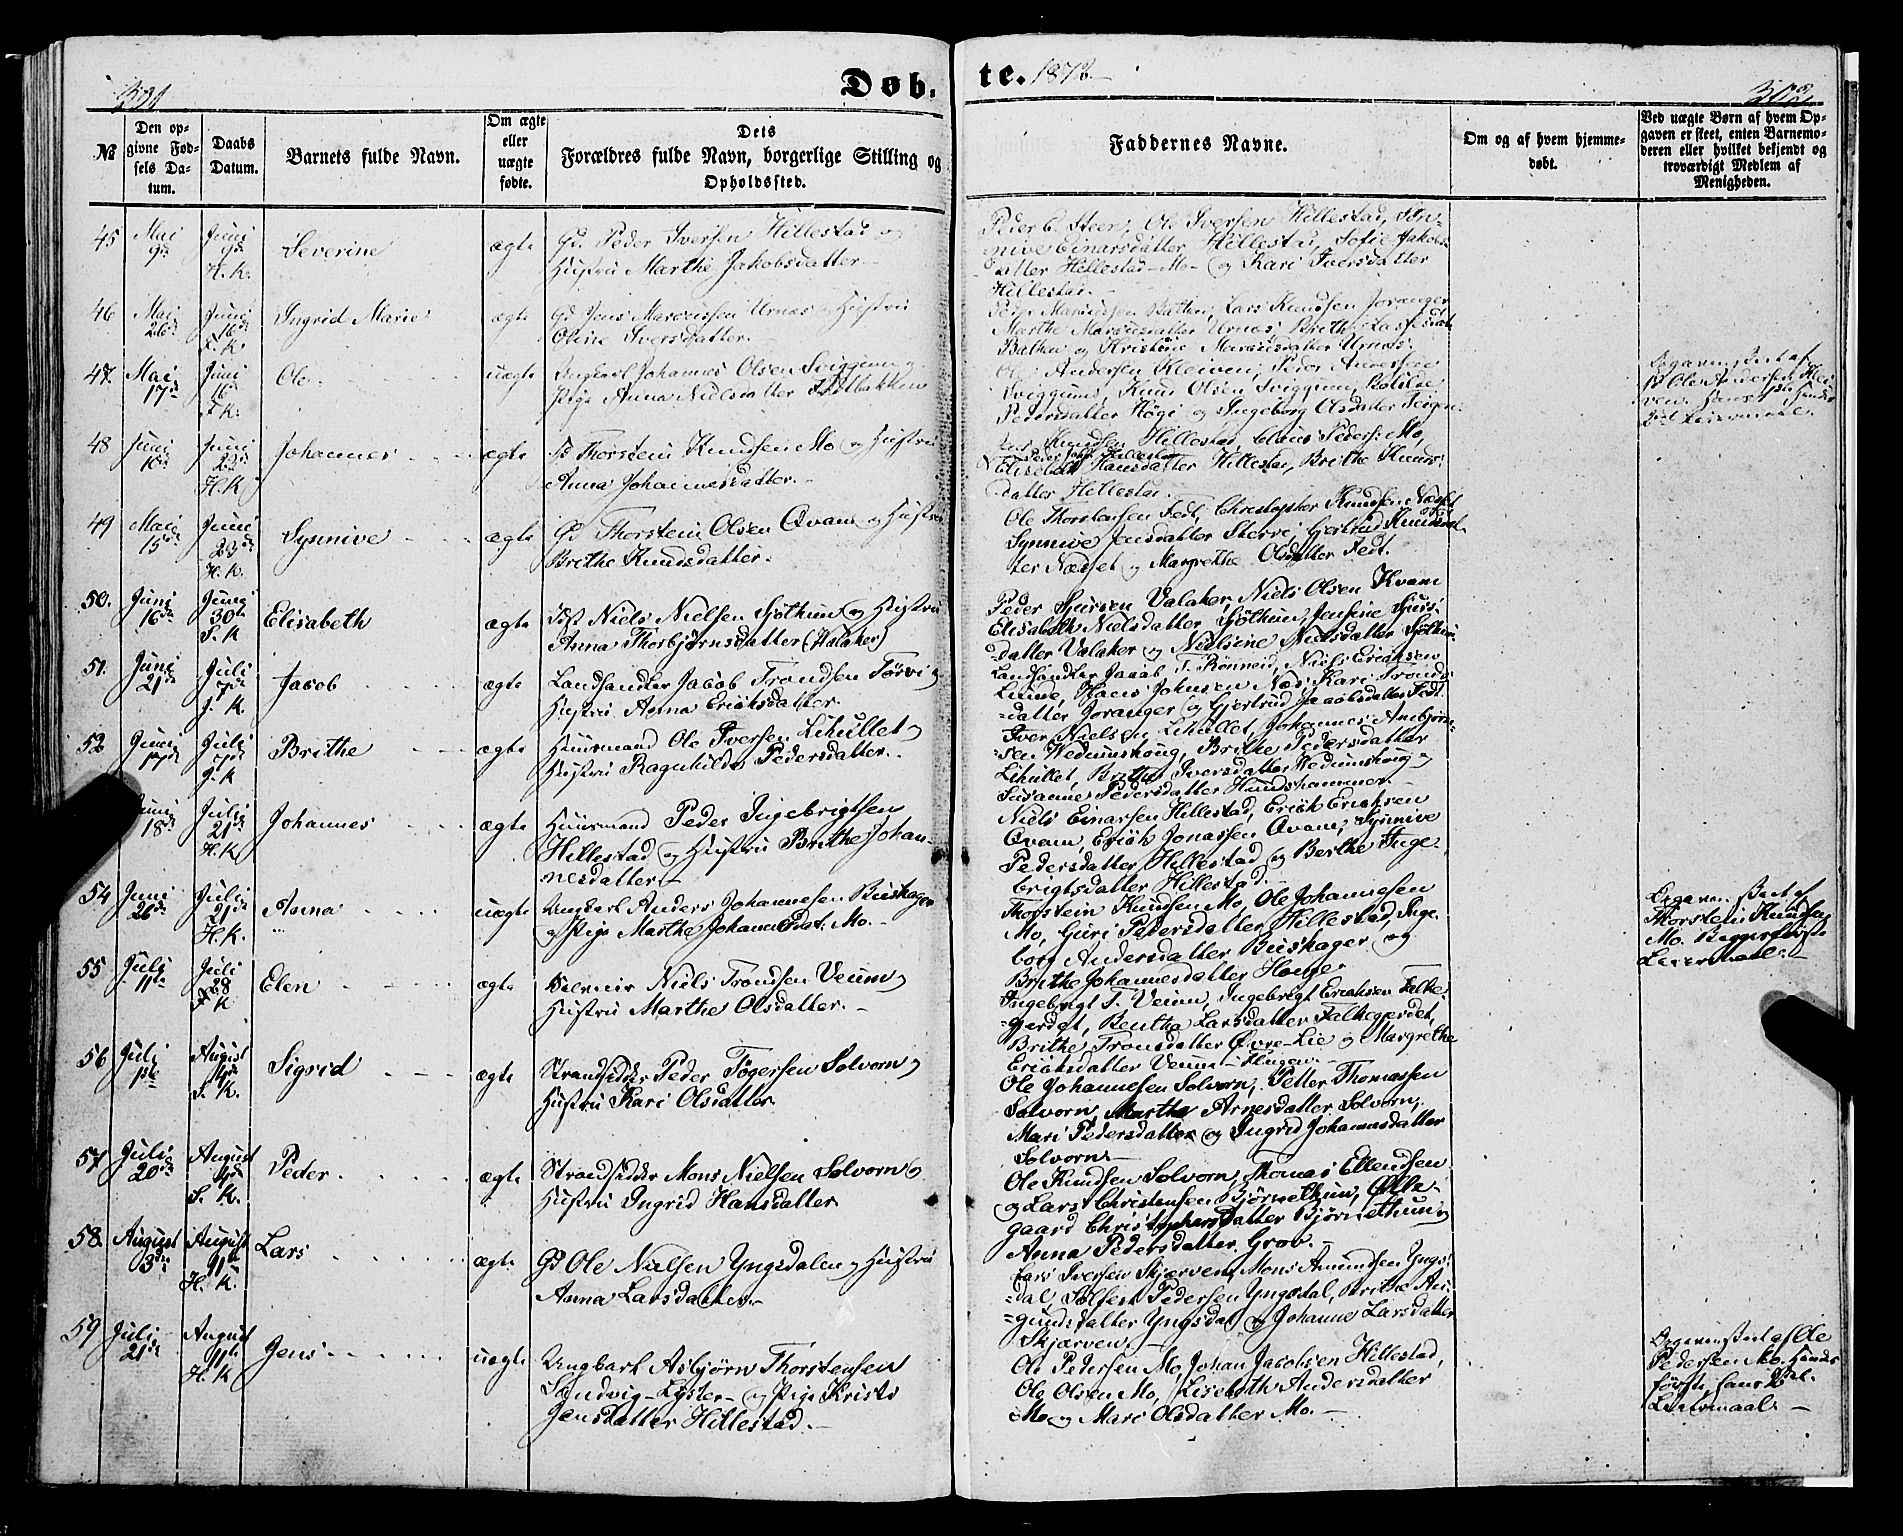 301
Døb-
te. 1872.
302
№
Den op-
givne Fød-
sels Da-
tum.
Daabs
Datum.
Barnets fulde Navn.
Om ægte
eller
uægte
fødte.
Dets
Forældres fulde Navn, borgerlige Stilling og
Opholdssted.
Faddernes Navne.
Om og af hvem hjemme-
døbt.
Ved uægte Børn af hvem Op-
gaven er skeet, enten Barnemo-
deren eller hvilket bekjendt og
troværdigt Medlem af
Menigheden.
45 Mai 9de Juni 9de H. K. Severine ægte Gd. Peder Iversen Hillestad og
Hustru Marthe Jakobsdatter.
Ole Iversen Hillestad, Syn-
nive Einarsdatter Hillestad, Sofie Jakobs-
datter Hillestad-Mo- og Kari Iversdatter
Hillestad.
46 Mai 26de Juni 16de Ingrid Marie ægte Gd Jens Marcussen Urnæs og Hustru
Oline Iversdatter.
Lars Knudsen Joranger
Marthe Marcusdatter Urnæs, Brithe Lassesdatt.
Balken og Kristine Marcusdatter Urnæs.
47. Mai 17de Juni 16 Ole uægte Ungkarl Johannes Olsen Sviggum og
Pige Anna Nielsdatter
Ole Andersen Kleiven, Peder Andersen
Sviggum, Knud Olsen Sviggum,
Pedersdatter Høgi og Ingeborg Olsdatter Teigen.
Opgaven skeet af
Ole Andersen Klei-
ven. Hans 1ste, hendes
2det Leiermaal.
48 Juni 10de Juni 23de H. K Johannes ægte Gd Thorstein Knudsen Mo og Hustru
Anna Johannesdatter.
Knudsen Hillestad, Claus Peders: Mo,
Elisabeth Hansdatter Hillestad, Brithe Knuds-
datter Hillestad.
49 Mai 15de Juni 23de H. K. Synnive ægte Gd Thorstein Olsen Qvam og Hustru
Brithe Knudsdatter.
Ole Thorstensen Fedt, Christopher Knudsen Næset
Synnive Jensdatter Skerri, Gjertrud Knudsdat-
ter Næset og Margrethe Olsdatter Fedt.
50. Juni 16de Juni 30te S. K Elisabeth ægte Niels Nielsen Sjøthun og Hustru
Anna Thorbjørnsdatter (Valaker)
Peder Sjursen Valaker, Niels Olsen Kvam
Elisabeth Nielsdatter Sjøthun, Jensine Sjurs-
datter Valaker og Nielsine Nielsdatter Sjøthun
51. Juni 21de Juli 7de J. K. Jacob ægte Landhandler Jacob Trondsen Tørvi og
Hustru Anna Eriksdatter.
Landhandler Jacob T. Rønneid, Niels Eriksen
Hans Johnsen Næs, Kari Tronds-
datter Joranger og Gjertrud Jacobsdatter Fedt.
52 Juni 17de Juli 7de J. K Brithe ægte Huusmand Ole Iversen Lihullet og
Hustru Ragnhilde Pedersdatter.
Iver Nielsen Lihullet, Johannes Ambjørn-
sen Wedumshoug, Brithe Pedersdatter
Lihullet, Brithe Iversdatter Wedumshoug og
Susanne Pedersdatter Hundshammer.
Juni 18de Juli 21de H. K Johannes ægte Huusmand Peder Ingebrigtsen
Hillestad og Hustru Brithe Johan-
nesdatter.
Niels Einarsen Hillestad, Erik Eriksen
Qvam, Erik Jonassen Qvam, Synnive
Pedersdatter Hillestad og Berthe Inge-
brigtsdatter Hillestad.
54 Juni 26de Juli 21de H. K. Anna uægte Ungkarl Anders Johannesen Beiskager
og Pige Marthe Johannesdat. Mo.
Thorstein Knudsen Mo, Ole Johannesen
Mo, Guri Pedersdatter Hillestad, Inge-
borg Andersdatter Beiskager og
Brithe Johannesdatter Hauge.
Opgaven skeet af
Thorstein Knudsen
Mo. Begges første
Leiermaal.
55 Juli 11te Juli 28 Elen ægte Niels Trondsen Veum og
Hustru Marthe Olsdatter.
Ingebrigt T. Veum, Ingebrigt Eriksen Falke-
gerdet, Bentha Larsdatter Falkegerdet,
Brithe Tronsdatter Øvre-Lie og Margrethe
Eriksdatter Veum-Hagen.
56 Juli 1ste August 4de S. K. Sigrid ægte Strandsidder Peder Tøgersen Solvorn og
Hustru Kari Olsdatter
Ole Johannesen Solvorn, Petter Thomassen
Solvorn, Marthe Arnesdatter Solvorn,
Mari Pedersdatter og Ingrid Johannesdatter
Solvorn.
57 Juli 20de August 4de S. K. Peder ægte Strandsidder Mons Nielsen Solvorn og
Hustru Ingrid Hansdatter
Ole Knudsen Solvorn, Thomas Ellendsen
og Lars Christensen Bjørnethun,
gaard Christophersdatter Bjørnethun og
Anna Pedersdatter Grov.
58. August 3die August 11te H. K. Lars ægte Gd Ole Nielsen Yngsdalen og Hustru
Anna Larsdatter.
Lars Iversen Skjerven, Mons Amundsen Yngs-
dal, Sølfest Pedersen Yngsdal, Brithe Au-
gundsdatter Yngsdal og Johanne Larsdatter
Skjærven.
59 Juli 21de August 11te H. K Jens uægte Ungkarl Asbjørn Thorstensen
Sandvig-Lyster- og Pige Kristi
Jensdatter Hillestad.
Ole Pedersen Mo, Johan Jacobsen Hillestad,
Ole Olsen Mo, Lisebeth Andersdatter
Mo og Mari Olsdatter Mo.
Opgaven skeet af Ole
Pedersen Mo. Hendes
første, hans 2det
Leiermaal.